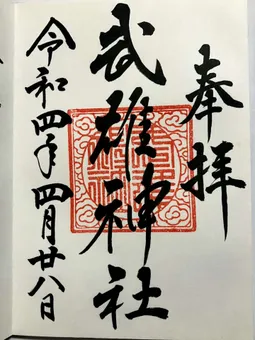 奉拝
武雄神社
令和四年四月廿八日